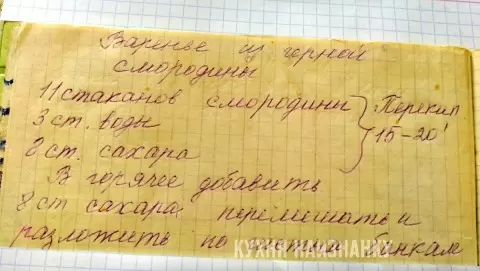 Варенье из черной
смородины
11 стаканов смородины
3 ст. воды
2 ст. сахара
Перекип
15-20'
В горячее добавить
8 ст сахара, перемешать и
разложить по чистым банкам
КУХНЯ НАИЗНАНКУ